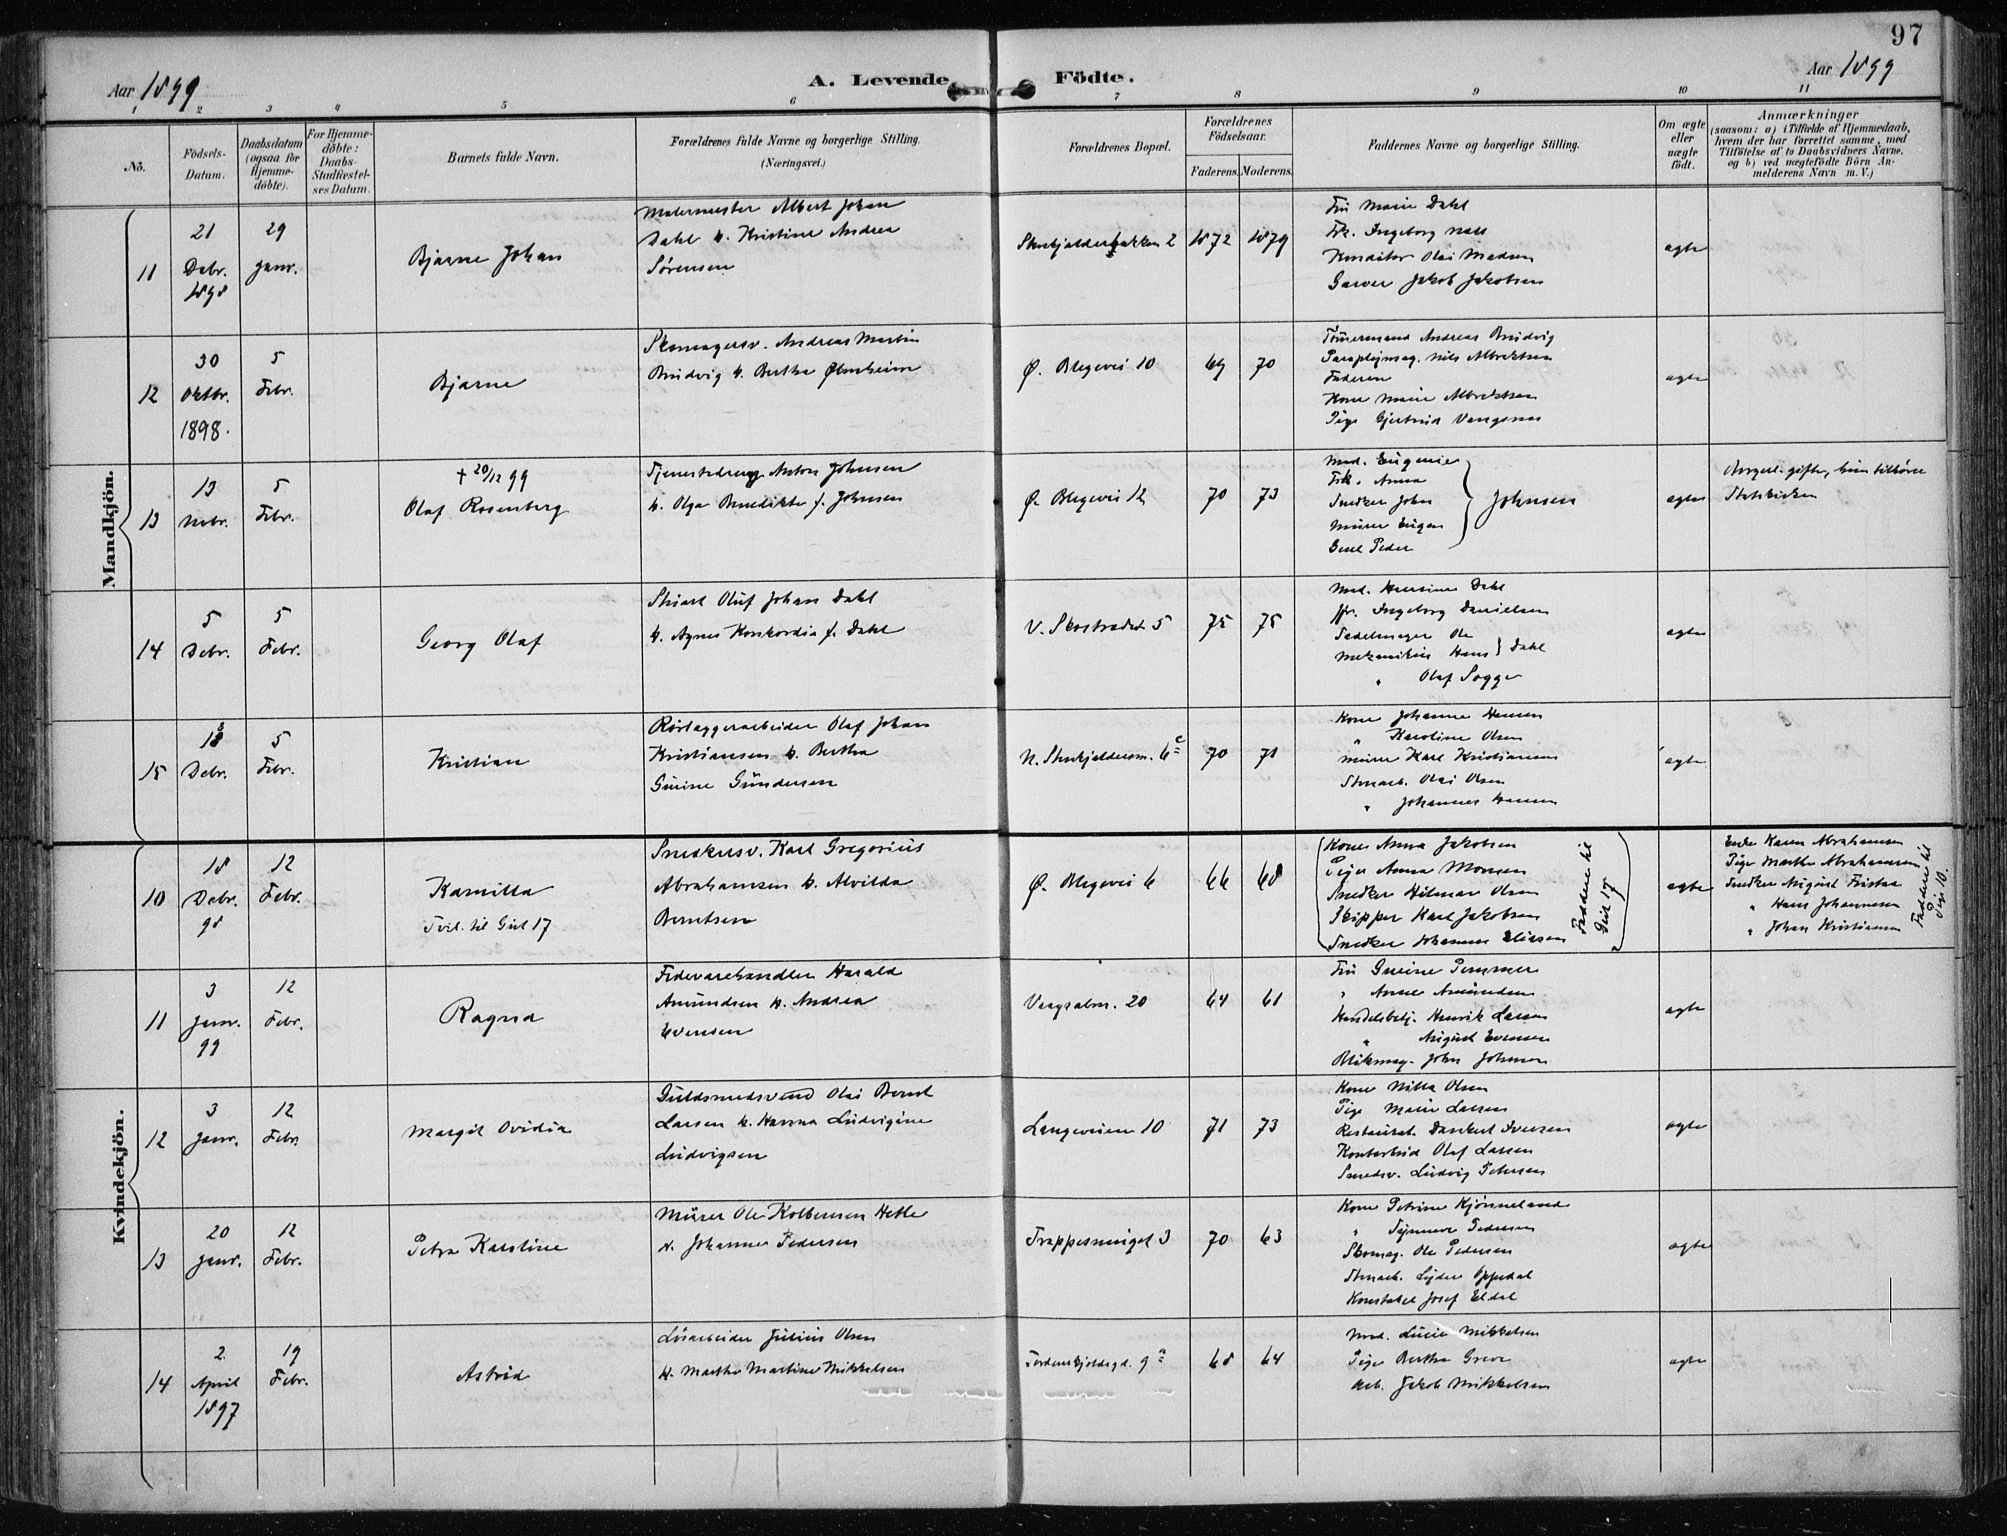 97
Aar 1899
A. Levende Födte.
Aar 1899
1 2 3 4 5 6 7 8 9 10 11
No.
Födsels-Datum.
Daabsdatum (ogsaa for Hjemme-döbte).
For Hjemme-döbte: Daabs-Stadfæstel-ses Datum.
Barnets fulde Navn.
Forældrenes fulde Navne og borgerlige Stilling.
(Næringsvei.)
Forældrenes Bopæl.
Forældrenes Födselsaar.
Faderens. Moderens.
Faddernes Navne og borgerlige Stilling.
Om ægte eller uægte födt.
Anmærkninger
(saasom: a) i Tilfælde af Hjemmedaab,
hvem der har forrettet samme, med
Tilföielse af to Daabsvidners Navne,
og b) ved uægtefödte Börn An-
melderens Navn m. V.)
Mandkjön.
11
21 Debr. 1898
29 Janr.
Bjarne Johan
Malermester Albert Johan
Dahl & Kristine Andrea
Sörensen
Stenkjelderbakken 2
1872 1879
Fru Marie Dahl
Frk. Ingeborg
Konditor Olai Madsen
Garver Jakob Jakobsen
ægte
12
30 Oktbr. 1898.
5 Febr.
Bjarne
Skomagersv. Andreas Martin
Bruvig & Bertha Ølmheim
Ø. Blegevei 10
69 70
Tömmermand Andreas Bruvig
Paraplymag. Nils Albrektsen
Faderen
Kone Marie Albrektsen
Pige Gjertrud Vangsnes
ægte
13
13 Novbr.
5 Febr.
+ 20/12 99
Olaf Rosenberg
Tjenestedreng Anton Johnsen
& Olga Benedikte f. Johnsen
Ø. Blegevei 12
70 73
Mad. Eugenie
Frk. Anna
Snedker John
Murer Eugen
Peder
Johnsen
ægte
Borgerl. gifte, hun tilhörer
Statskirken
14
5 Debr.
5 Febr.
Georg Olaf
Oluf Johan Dahl
& Agnes Konkordia f. Dahl
V. Skostrædet 5
75 75
Mad. Dahl
Jfr. Ingeborg Danielsen
Sadelmager Ole
Mekanikus Hans } Dahl
" Olaf Sogge
ægte
15
18 Debr.
5 Febr.
Kristian
Rörlæggerarbeider Olaf Johan
Kristiansen & Bertha
Gurine Gundersen
N. Stenkjeldersm. 6c
70 71
Kone Johanne Hansen
" Karoline Olsen
Murer Karl Kristiansen
Stenarb. Olai Olsen
" Johannes Hansen
ægte
Kvindekjön.
10
18 Debr. 98
12 Febr.
Kamilla
Tvil. til Gut 17
Snedkersv. Karl Gregorius
Abrahamsen & Alvilda
Berntsen
Ø. Blegevei 6
66 68
Kone Anna Jakobsen
Pige Anna Monsen
Snedker Hilmar Olsen
Skipper Karl Jakobsen
Snedker Johannes Eliasen
Faddere til Gut 17
ægte
Enke Karen Abrahamsen
Pige Marthe Abrahamsen
Snedker August
" Hans Johannesen
" Johan Kristiansen
Faddere til Pige 10.
11
3 Janr. 99
12 Febr.
Ragna
Fedevarehandler Harald
Amundsen & Andrea
Evensen
Vaagsalm. 20
64 61
Fru Gurine Pommer
" Anne Amundsen
Handelsbetj. Henrik Larsen
" August Evensen
Blikmag. John Johnsen
ægte
12
3 Janr.
12 Febr.
Margit Ovidia
Guldsmedsvend Olai Bernt
Larsen & Hanna Ludvigine
Ludvigsen
Langeveien 10
71 73
Kone Milla Olsen
Pige Marie Larsen
Restaurat. Dankert Iversen
Kontorbud Olaf Larsen
Smedsv. Ludvig Petersen
ægte
13
20 Janr.
12 Febr.
Petra Karoline
Murer Ole Kolbensen Hetle
& Johanne Pedersen
Trappesmuget 3
70 63
Kone Petrine Kjönneland
" Synneve Pedersen
Skomag. Ole Pedersen
Stenarb. Lyder Oppedal
Konstabel Josef Eldal
ægte
14
2. April 1897
19 Febr.
Astrid
Lösarbeider Julius Olsen
& Marthe Martine Mikkelsen
Tordenskjoldsgd. 9a
68 64
Mad. Lucie Mikkelsen
Pige Bertha Greve
Arb. Jakob Mikkelsen
ægte